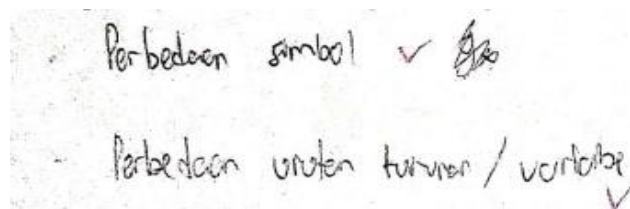 - Perbedaan simbol ✓
- Perbedaan urutan turunan / variabe ✓